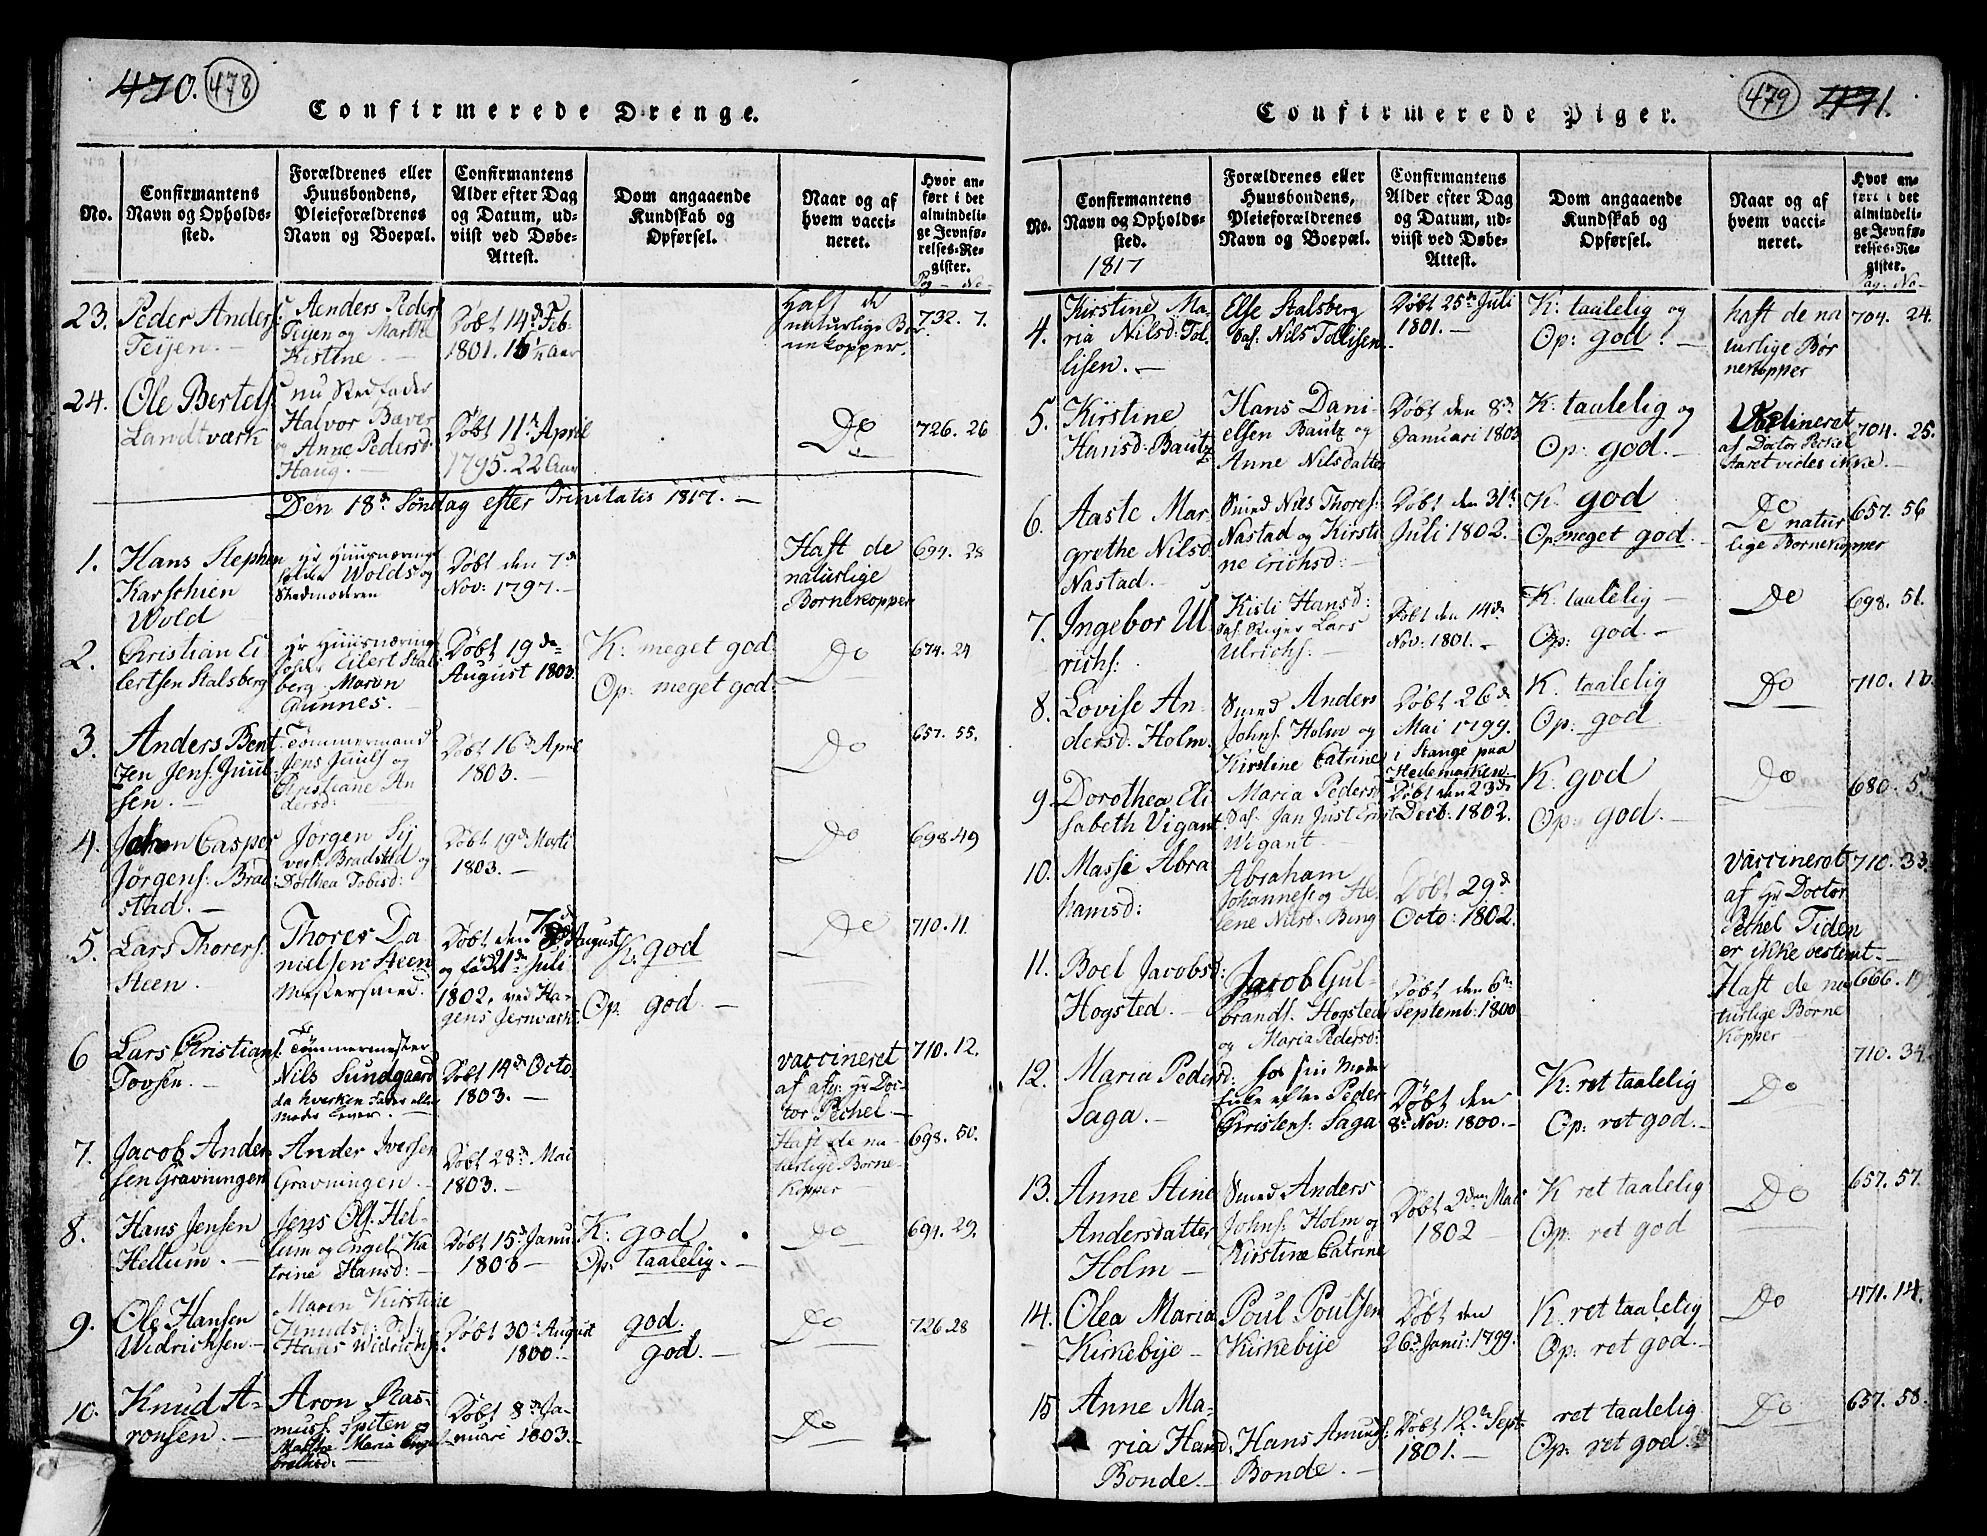 470. 478
Confirmerede Drenge.
No.
Confirmantens
Navn og Opholds-
sted.
Forældrenes eller
Huusbondens,
Pleieforældrenes
Navn og Boepæl.
Confirmantens
Alder efter Dag
og Datum, ud-
viist ved Døbe-
Attest.
Dom angaaende
Kundskab og
Opførsel.
Naar og af
hvem vacci-
neret.
Hvor an-
ført i det
almindeli-
ge Jevnfø-
relses-Re-
gister.
Pag - No -
23.
Peder Anders:
Teijen. -
Aenders Peders
Teijen og Marthe
Kistine -
Døbt 14d Feb
1801. 16½ Aar
Haft de
naturlige B
nekopper.
732. 7.
24.
Ole Bertels
Landtværk
nu Stedfader
Halvor Bæver
og Anne Pedersd
Haug. -
Døbt 11t April
1795. 22 Aar
Do
726. 26
Den 18d Søndag efter Trinitatis 1817. -
1.
Hans Stephen
Karschien
Wold
Hr Huusnærings
Wolds og
Stedmoderen
Døbt den 7d
Nov: 1797. -
Haft de
naturlige
Bornekopper
694. 28
2.
Christian Ei
lertsen Stalsberg
Hr Huusnærings
Eilert Stal
berg. Maren
Gunnes. -
Døbt 19de
August 1803.
K: meget god.
Op: meget god:
Do
674. 24
3.
Anders Bent
zen Jens. Juul
sen. -
Tømmermand
Jens Juuls og
Christiane An
dersd:
Døbt 16d April
1803. -
Do
657. 55.
4.
Johan Casper
Jørgens: Brad
stad. -
Jørgen Sij
vers. Bradstad og
Dorthea Tobisd:
Døbt 19d Marti
1803. -
Do
698. 49
5.
Lars Thorers.
Steen.
Thorer Da
nielsen Steen
Mestersmed.
Døbt den 7d August
og fød 21d Juli
1802. ved Ha-
gens Jernværk:
K: god
Op: god. -
Do
710. 11.
6
Lars Christian
Tovsen. -
Tømmermester
Nils Sundgaard
da hverken Fader eller
Moder lever. -
Døbt 14d Octo:
1803. -
vaccineret
af Hr Doc-
tor Pechel. -
710. 12.
7.
Jacob Ander-
sen Gravningen
Ander Iversen
Gravningen. -
Døbt 28d Mai
1803. -
Haft de na-
turlige Borne-
kopper
698. 50.
8.
Hans Jensen
Hellum. -
Jens Ols. Hel-
lum og Engel Ka
trine Hansd: -
Døbt 15d Janu
1803 -
K: god
Op: taalelig. -
Do
694. 29.
9.
Ole Hansen
Widrichsen -
Maren Kirstine
Knudst:
Hans Widrichs
Døbt 30t August
1800. -
god.
god. -
Do
726. 28
10.
Knud A-
ronsen. -
Aron Ras-
mus: Spiten og
Maria Enge
brethsd:
Døbt 8d Ja-
nuari 1803. -
Do
Confirmerede Piger.
479 471.
No.
Confirmantens
Navn og Opholds-
sted.
1817
Forældrenes eller
Huusbondens,
Pleieforældrenes
Navn og Boepæl.
Confirmantens
Alder efter Dag
og Datum, ud-
viist ved Døbe-
Attest.
Dom angaaende
Kundskab og
Opførsel.
Naar og af
hvem vacci-
neret.
Hvor an-
ført i det
almindeli-
ge Jevnfø-
relses-Re-
gister.
Pag: No -
4.
Kirstine Ma-
ria Nilsd: Tol-
lisen. -
Else Stalsberg
Nils Tollisen
Døbt 25d Juli
1801. -
K: taalelig og
Op: god. -
haft de na
turlige Bør
nekopper
704. 24.
5.
Kirstine
Hansd: Bautz
Hans Dani-
elsen Bautz og
Anne Nilsdatter
Døbt den 8d
Januari 1803
K: taalelig og
Op: god. -
Vaccineret
af Doctor Pechel
Aaret vides ikke. -
704. 25.
6.
Aaste Mar-
grethe Nilsd:
Nastad.
Smed Nils Thores:
Nastad og Kirsti
ne Erichsd: -
Døbt den 31t
Juli 1802.
K: god
Op: meget god. -
De natur
lige Bornekopper
657. 56
7.
Ingebor Ul
richs:
Kisti Hansd:
Lars
Ulrichs: -
Døbt den 14d
Nov: 1801. -
K: taalelig -
Op: god. -
Do
698. 51.
8.
Lovise An
dersd: Holm.
Smed Anders
Johns. Holm og
Kirstine Catrine
Døbt 26d
Mai 1799.
i Stange paa
Hedemarken
K. taalelig
Op: god -
Do
710.
9
Dorothea Eli
sabeth Vigant.
Maria Pedersd
Jan Just Ernst
Wigant. -
Døbt den 23d
Decb: 1802.
K: god
Op: god. -
Do
680. 5
10.
Massi Abra
hamsd:
Abraham
Johannes: og He
lene Nilsd: Bing
Døbt 29d
Octo: 1802.
vaccineret
af Hr Doctor
Pechel Tiden
er ikke bestemt. -
710. 33.
11.
Boel Jacobsd:
Hogsted. -
Jacob Gul-
brands. Hogsted
og Maria Pedersd:
Døbt den 6t
Septemb: 1800
Haft de na
turlige Børne
Kopper
666.
12.
Maria Pedersd:
Saga. -
Enke efter Peder
Christens: Saga
Døbt den
8d Nov: 1800. -
K: ret taalelig
Op: ret god. -
Do
710. 34.
13.
Anne Stine
Andersdatter
Holm -
Smed Anders
Johns. Holm og
Kirstine Catrine
Døbt 2den Mai
1802 -
K ret taalelig
Op: ret god
Do
657. 57.
14.
Olea Maria
Kirkebije -
Poul Poulsen
Kirkebije
Døbt den
26d Janu: 1799.
K: ret taalelig
Op: ret god. -
Do
471. 14.
15
Anne Ma-
ria Hansd:
Bonde -
Hans Amunds:
Bonde. -
Døbt 12te Sept
1801. -
ret taalelig
Op: ret god.
Do
657. 58.